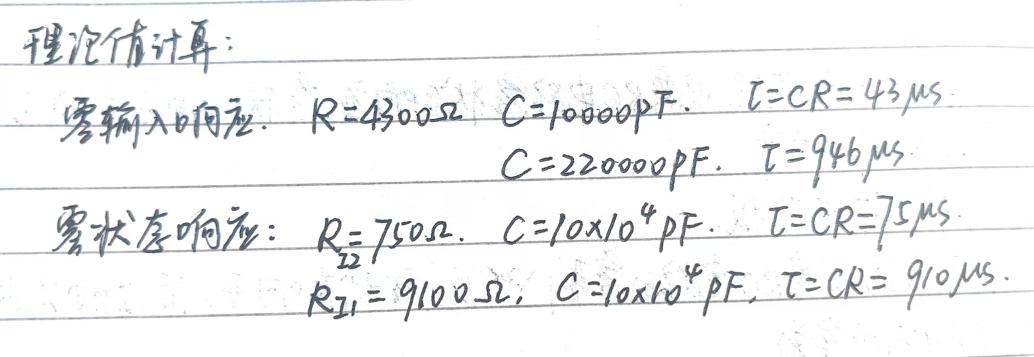 理论值计算:
零输入响应. R=4300Ω C=10000pF. τ=CR=43μs.
C=220000pF. τ=946μs.
零状态响应: R_I2=750Ω. C=10×10⁴pF. τ=CR=75μs.
R_I1=9100Ω. C=10×10⁴pF. τ=CR=910μs.